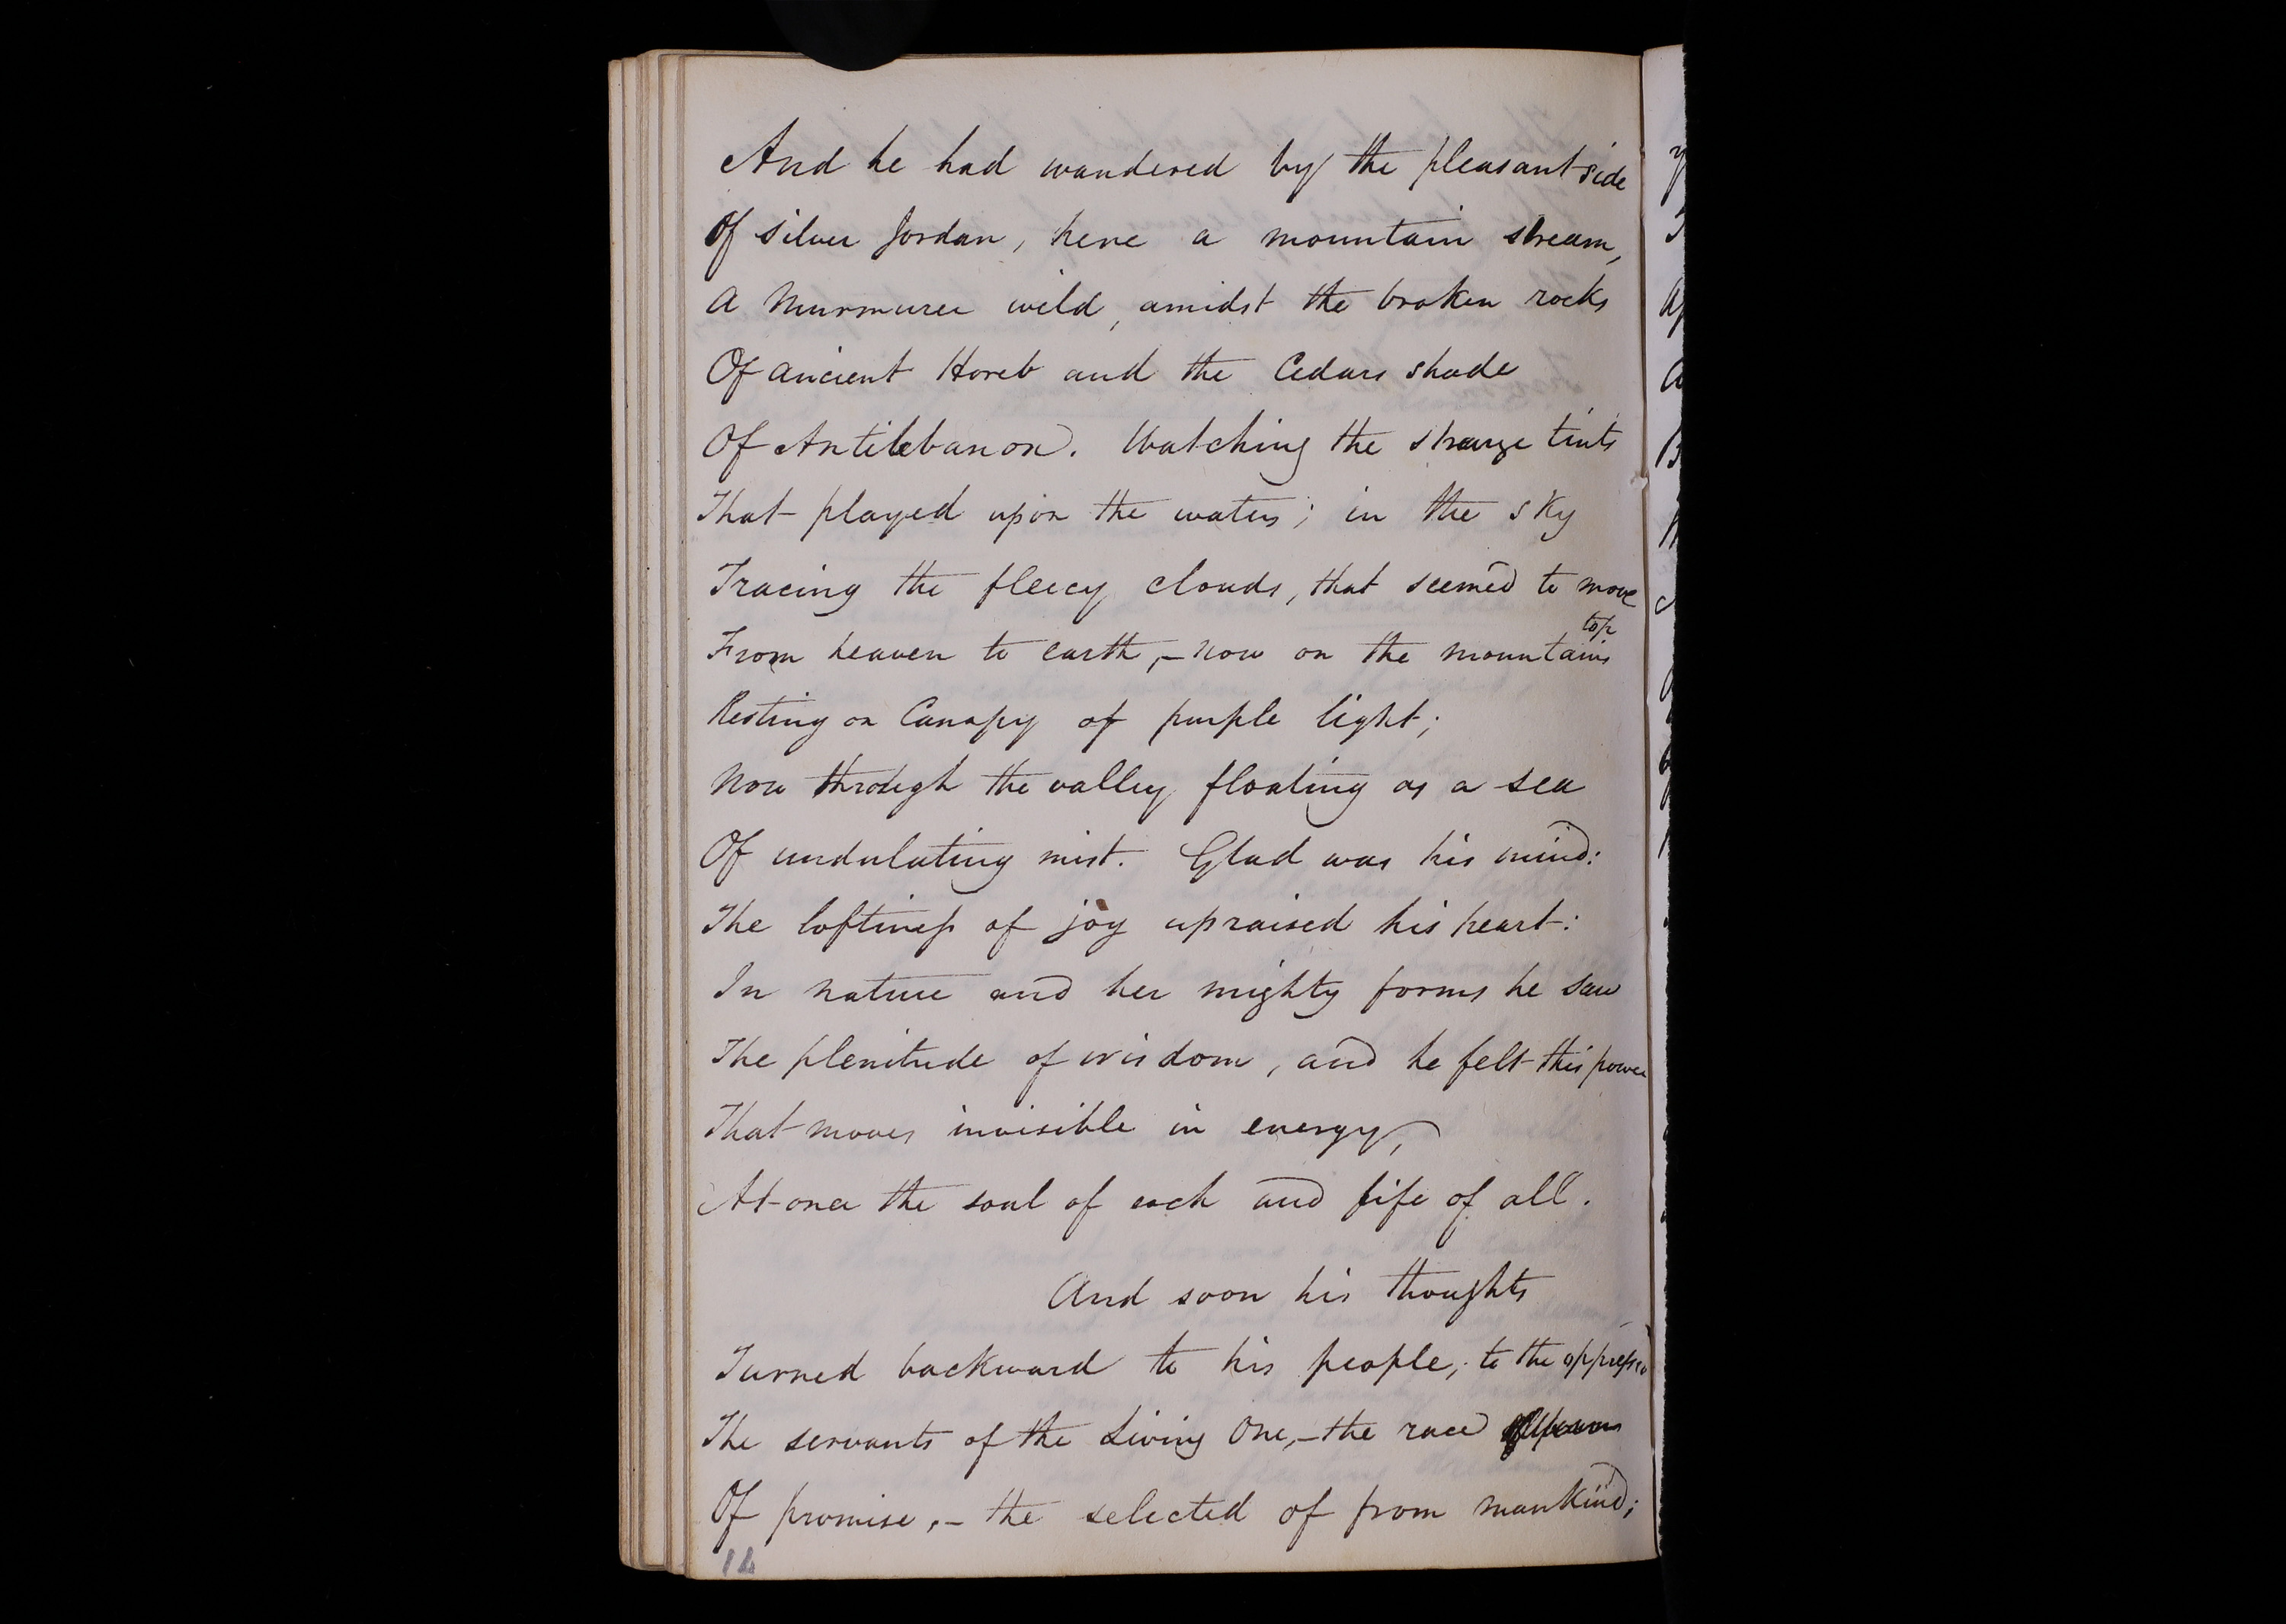 And he had wandered by the pleasant side
Of silver Jordan, here a mountain stream,
A murmurer wild, amidst the broken rocks
Of ancient Horeb and the Cedars shade
Of Antilebanon. Watching the strange tints
That played upon the waters; in the sky
Tracing the fleecy clouds, that seemed to move
top
From heaven to earth,– now on the mountains
Resting on Canopy of purple light;
Now through the valley floating as a sea
Of undulating mist. Glad was his mind:
The loftiness of joy upraised his heart:
In nature and her mighty forms he saw
The plenitude of wisdom, and he felt this power
That moves invisible in energy,
At once the soul of each and life of all.
And soon his thoughts
Turned backward to his people, to the oppressed
The servants of the Living One,– the race
Of promise,– the selected of from mankind;
12